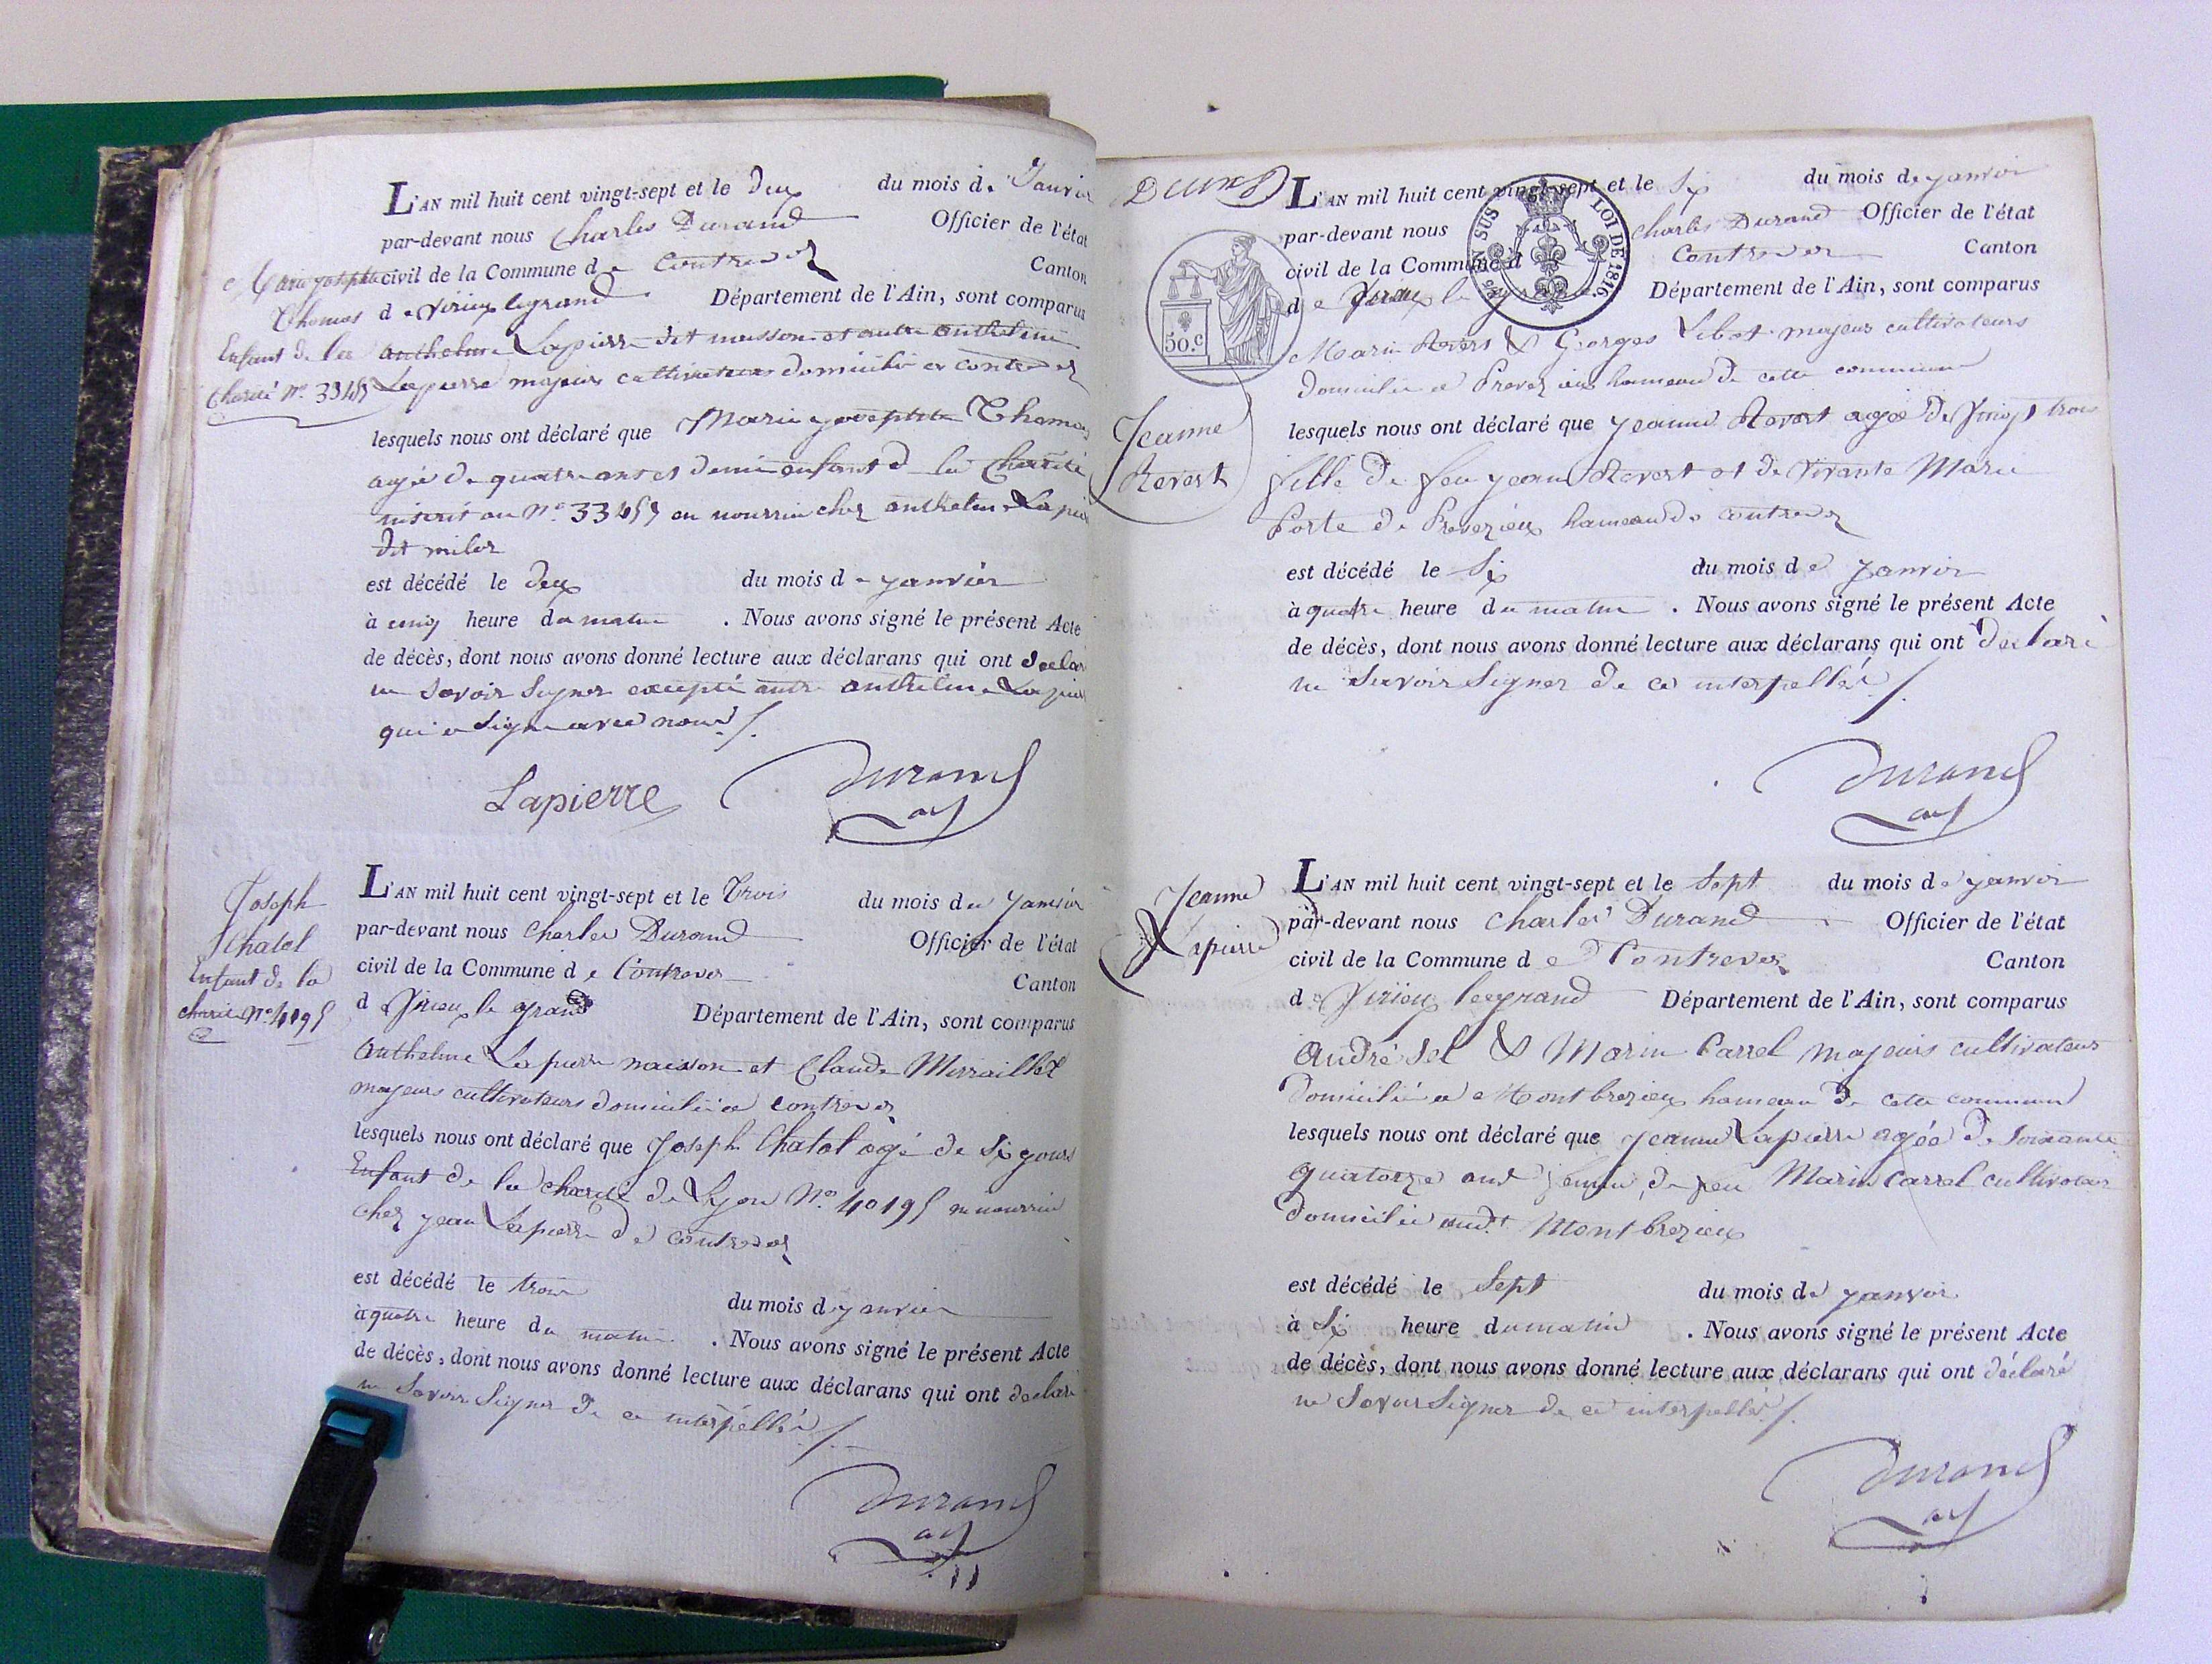 L'AN mil huit cent vingt-sept et le deux du mois de Janvier
par-devant nous Charles Durand Officier de l'état
civil de la Commune de Contrevoz Canton
de virieu legrand Département de l'Ain, sont comparus
anthelme Lapierre dit masson et autre anthelme
Lapierre majeurs cultivateurs domicilié à contrevoz
lesquels nous ont déclaré que Marie josephte Thomas
agée de quatre ans et demi enfant d la Charité
inscrit au N° 33459 en nourrice chez anthelme Lapierre
dit milor
est décédé le deux du mois de janvier
à cinq heure du matin . Nous avons signé le présent Acte
de décès, dont nous avons donné lecture aux déclarans qui ont declaré
ne savoir signer excepté autre anthelme Lapierre
qui a signé avec nous /.
Lapierre Durand
Marie josephte
Thomas
Enfant de la
Charité N° 33459
L'AN mil huit cent vingt-sept et le Trois du mois de janvier
par-devant nous Charles Durand Officier de l'état
civil de la Commune de Contrevoz Canton
d Virieu le grand Département de l'Ain, sont comparus
anthelme Lapierre masson et Claude Mirraillet
majeurs cultivateurs domicilié à contrevoz
lesquels nous ont déclaré que Joseph Chatol agé de six jours
Enfant de la charité de Lyon N° 40195 en nourrice
chez jean Lapierre de contrevoz
est décédé le trois du mois d janvier
à quatre heure du matin . Nous avons signé le présent Acte
de décès, dont nous avons donné lecture aux déclarans qui ont declaré
ne savoir signer de ce interpellé /.
Durand
Joseph
Chatol
Enfant de la
charité N° 40195
L'AN mil huit cent vingt-sept et le six du mois de janvier
par-devant nous Charles Durand Officier de l'état
civil de la Commune d Contrevoz Canton
de Virieu le grand Département de l'Ain, sont comparus
Marin Revert & Georges Libot majeurs cultivateurs
domicilié à Prevezieu hameau de cette commune
lesquels nous ont déclaré que jeanne Revert agée de vingt trois
fille de feu jean Revert et de vivante Marie
Porte de Prevezieu hameau de contrevoz
est décédé le six du mois de janvier
à quatre heure du matin . Nous avons signé le présent Acte
de décès, dont nous avons donné lecture aux déclarans qui ont declaré
ne savoir signer de ce interpellé /.
Durand
50.c
EN SUS
LOI DE 1816
Jeanne
Revert
L'AN mil huit cent vingt-sept et le sept du mois de janvier
par-devant nous Charles Durand Officier de l'état
civil de la Commune de Contrevoz Canton
de Virieu legrand Département de l'Ain, sont comparus
André Sel & Marin Carrel majeurs cultivateurs
domicilié à Montbrezieu hameau de cette commune
lesquels nous ont déclaré que jeanne Lapierre agée de soixante
quatorze ans femme de feu Marin Carrel cultivateur
domicilié audt Montbrezieu
est décédé le sept du mois de janvier
à six heure du matin . Nous avons signé le présent Acte
de décès, dont nous avons donné lecture aux déclarans qui ont déclaré
ne savoir signer de ce interpellé /.
Durand
Jeanne
Lapierre